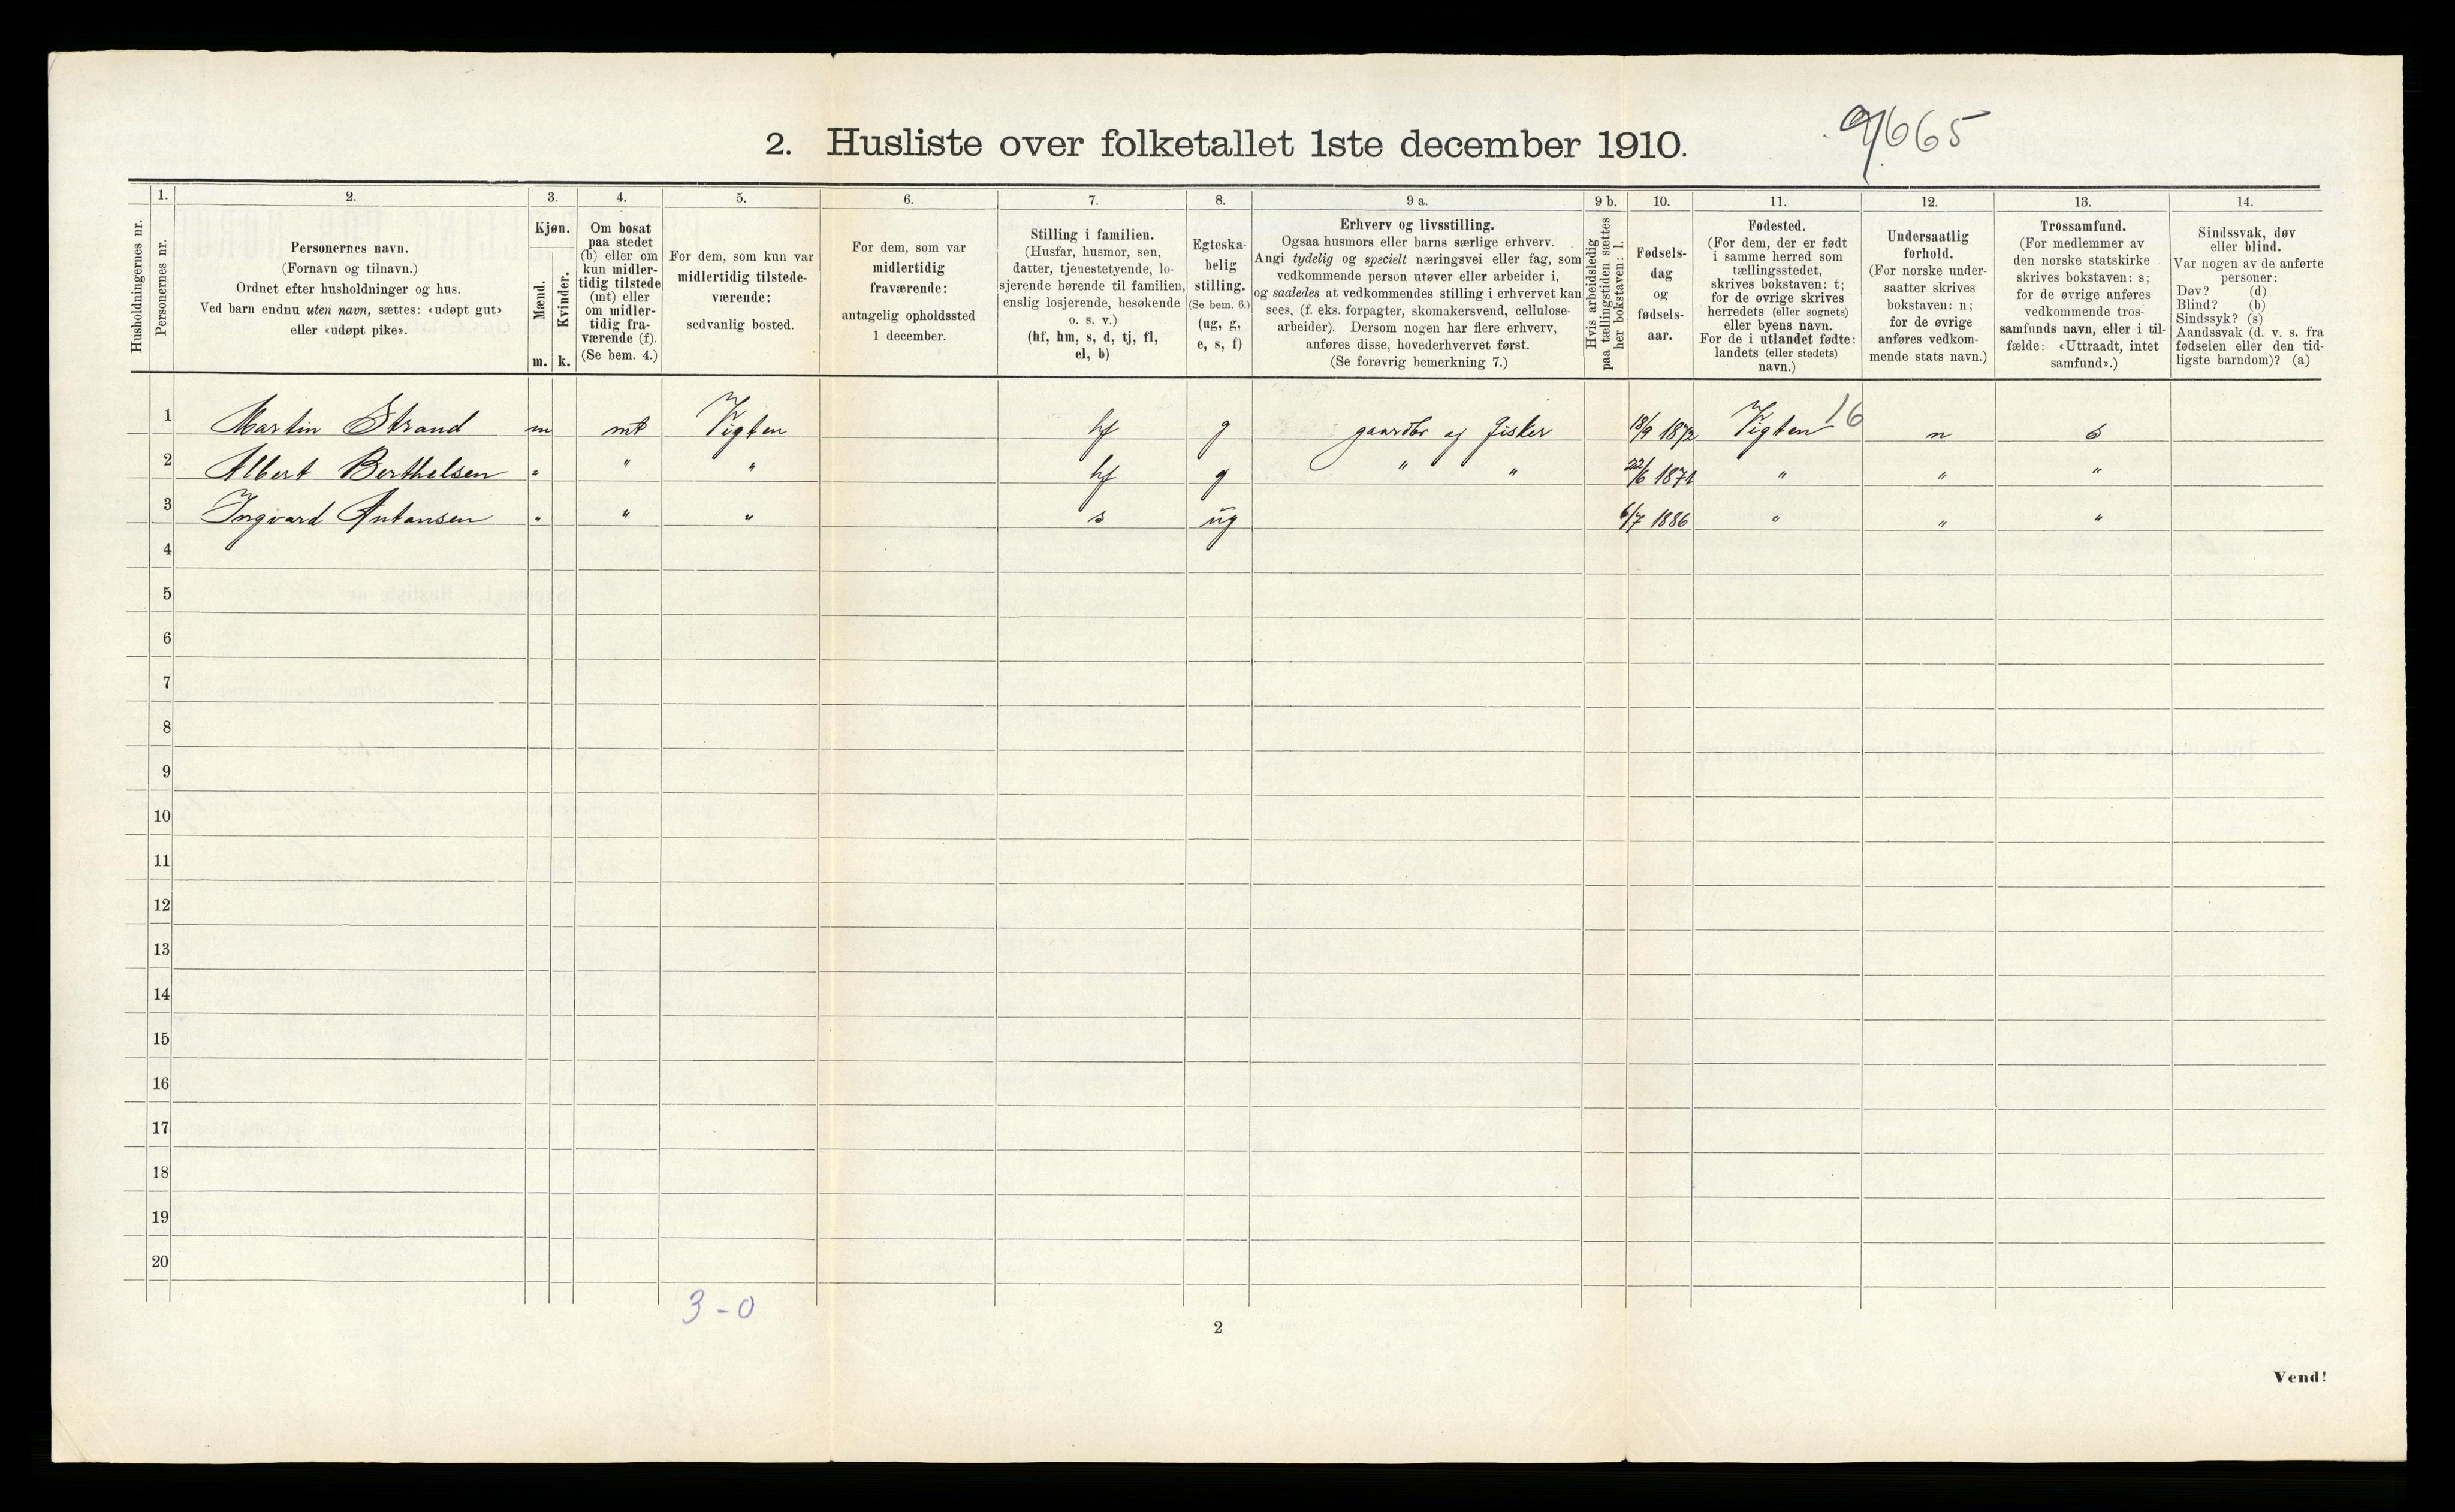 9/665
2. Husliste over folketallet 1ste december 1910.
1. 2. 3. 4. 5. 6. 7. 8. 9 a. 9 b. 10. 11. 12. 13. 14.
Husholdningernes nr.
Personernes nr.
Personernes navn.
(Fornavn og tilnavn.)
Ordnet efter husholdninger og hus.
Ved barn endnu uten navn, sættes: «udøpt gut»
eller «udøpt pike».
Kjøn.
Mænd.
Kvinder.
m. k.
Om bosat
paa stedet
(b) eller om
kun midler-
tidig tilstede
(mt) eller
om midler-
tidig fra-
værende (f).
(Se bem. 4.)
For dem, som kun var
midlertidig tilstede-
værende:
sedvanlig bosted.
For dem, som var
midlertidig
fraværende:
antagelig opholdssted
1 december.
Stilling i familien.
(Husfar, husmor, søn,
datter, tjenestetyende, lo-
sjerende hørende til familien,
enslig losjerende, besøkende
o. s. v.)
(hf, hm, s, d, tj, fl,
el, b)
Egteska-
belig
stilling.
(Se bem. 6.)
(ug, g,
e, s, f)
Erhverv og livsstilling.
Ogsaa husmors eller barns særlige erhverv.
Angi tydelig og specielt næringsvei eller fag, som
vedkommende person utøver eller arbeider i,
og saaledes at vedkommendes stilling i erhvervet kan
sees, (f. eks. forpagter, skomakersvend, cellulose-
arbeider). Dersom nogen har flere erhverv,
anføres disse, hovederhvervet først.
(Se forøvrig bemerkning 7.)
Hvis arbeidsledig
paa tællingstiden sættes
her bokstaven: l.
Fødsels-
dag
og
fødsels-
aar.
Fødested.
(For dem, der er født
i samme herred som
tællingsstedet,
skrives bokstaven: t;
for de øvrige skrives
herredets (eller sognets)
eller byens navn.
For de i utlandet fødte:
landets (eller stedets)
navn.)
Undersaatlig
forhold.
(For norske under-
saatter skrives
bokstaven: n;
for de øvrige
anføres vedkom-
mende stats navn.)
Trossamfund.
(For medlemmer av
den norske statskirke
skrives bokstaven: s;
for de øvrige anføres
vedkommende tros-
samfunds navn, eller i til-
fælde: «Uttraadt, intet
samfund».)
Sindssvak, døv
eller blind.
Var nogen av de anførte
personer:
Døv? (d)
Blind? (b)
Sindssyk? (s)
Aandssvak (d. v. s. fra
fødselen eller den tid-
ligste barndom)? (a)
1 Martin Strand m mt Vigten hf g gaardbr og fisker 18/9 1872 Vigten 16 n s
2 Albert Berthelsen " " " hf g " " 22/6 1871 " " "
3 Ingvard Antonsen " " " s ug 6/7 1886 " " "
4
5
6
7
8
9
10
11
12
13
14
15
16
17
18
19
20
3 - 0
2
Vend!